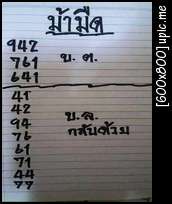 ม้ามืด
942
761 บ. ต.
641
41
42
94 บ. ล.
76 กลับด้วย
61
71
44
77
[600x800] upic.me